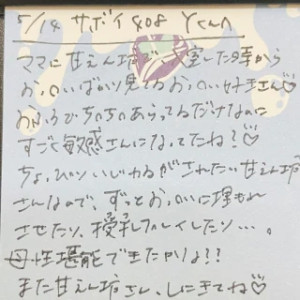 5/14 サボイ 408 Yくん
ママに甘えん坊で入室した時から
おっぱいばかり見てるおっぱい好きさん♡
おふろでちっちあらってるだけなのに
すごく敏感さんになってたね？♡
ちょっぴりいじわるがされたい甘えん坊
さんなので、ずっとおっぱいに埋もれ
させたり、授乳プレイしたり…。
母性堪能できたかな??
また甘えん坊さん、しにきてね♡